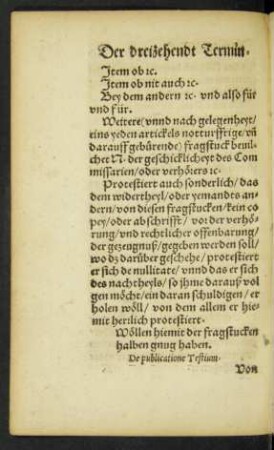 Der dreizehendt Termin.
Item ob ꝛc.
Item ob nit auch ꝛc.
Bey dem andern ꝛc. vnd also für
vnd für.
Weitere (vnnd nach gelegenheyt/
eins yeden artickels notturfftige/ vñ
darauff gebürende) fragstuck beuil-
chet N. der geschicklicheyt des Com
missarien/ oder verhörers ꝛc.
Protestiert auch sonderlich/ das
dem widertheyl/ oder yemandts an-
dern/ von diesen fragstucken/ kein co
pey/ oder abschrifft/ vor der verhö-
rung/ vnd rechtlicher offenbarung/
der gezeugnuß/ gegeben werden soll/
wo dz darüber geschehe/ protestiert
er sich de nullitate/ vnnd das er sich
des nachtheyls/ so jhme darauß vol
gen möcht/ ein daran schuldigen/ er
holen wöll/ von dem allem er hie-
mit herlich protestiert.
Wöllen hiemit der fragstucken
halben gnug haben.
De publicatione Testium.
Von